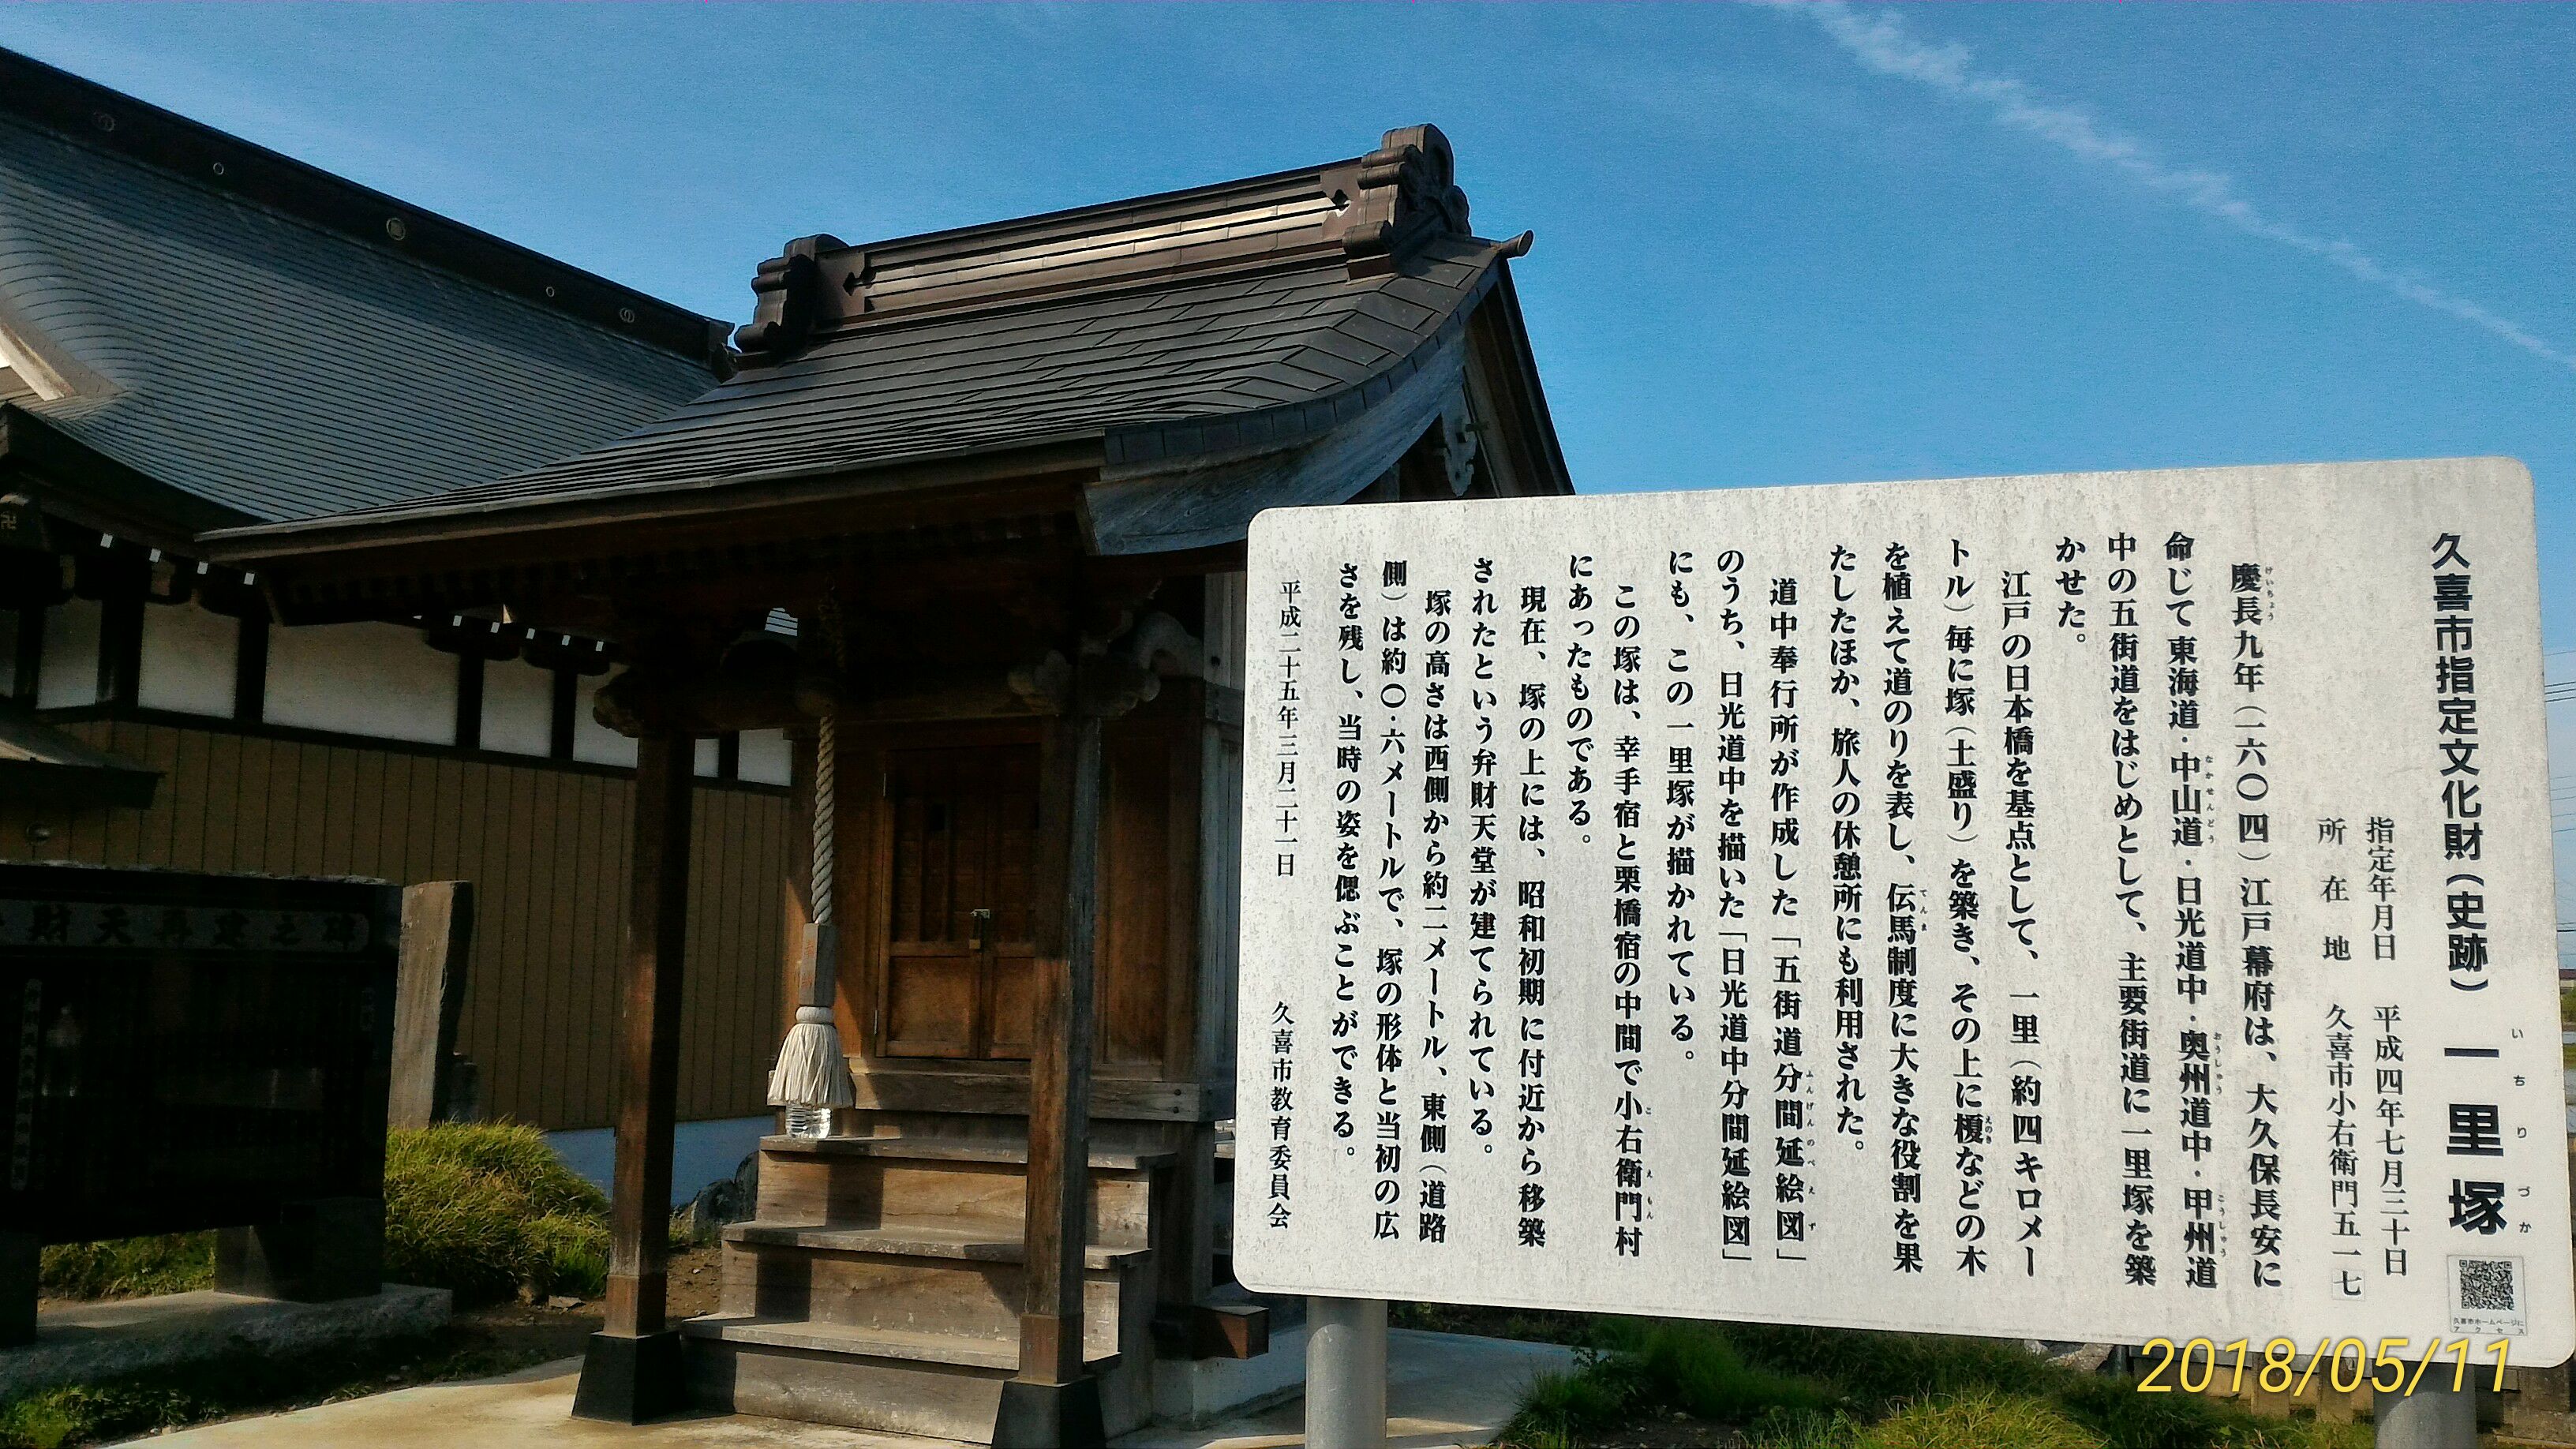 久喜市指定文化財(史跡) 一里塚
いちりづか
指定年月日 平成四年七月三十日
所在地 久喜市小右衛門五一七
慶長九年(一六〇四)江戸幕府は、大久保長安に
けいちょう
命じて東海道・中山道・日光道中・奥州道中・甲州道
なかせんどう おうしゅう こうしゅう
中の五街道をはじめとして、主要街道に一里塚を築
かせた。
江戸の日本橋を基点として、一里(約四キロメー
トル)毎に塚(土盛り)を築き、その上に榎などの木
えのき
を植えて道のりを表し、伝馬制度に大きな役割を果
てんま
たしたほか、旅人の休憩所にも利用された。
道中奉行所が作成した「五街道分間延絵図」
ぶんけんのべえず
のうち、日光道中を描いた「日光道中分間延絵図」
にも、この一里塚が描かれている。
この塚は、幸手宿と栗橋宿の中間で小右衛門村
こえもん
にあったものである。
現在、塚の上には、昭和初期に付近から移築
されたという弁財天堂が建てられている。
塚の高さは西側から約二メートル、東側(道路
側)は約〇・六メートルで、塚の形体と当初の広
さを残し、当時の姿を偲ぶことができる。
平成二十五年三月二十一日
久喜市教育委員会
久喜市ホームページに
アクセス
財天再建之碑
2018/05/11